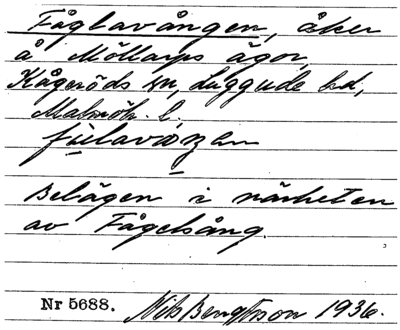 Fåglavången, åker
å Möllarps ägor,
Kågeröds sn, Luggude hd,
Malmöh. l.
fúlavåŋen
Belägen i närheten
av Fågelsång.
Nr 5688. Nils Bengtsson 1936.